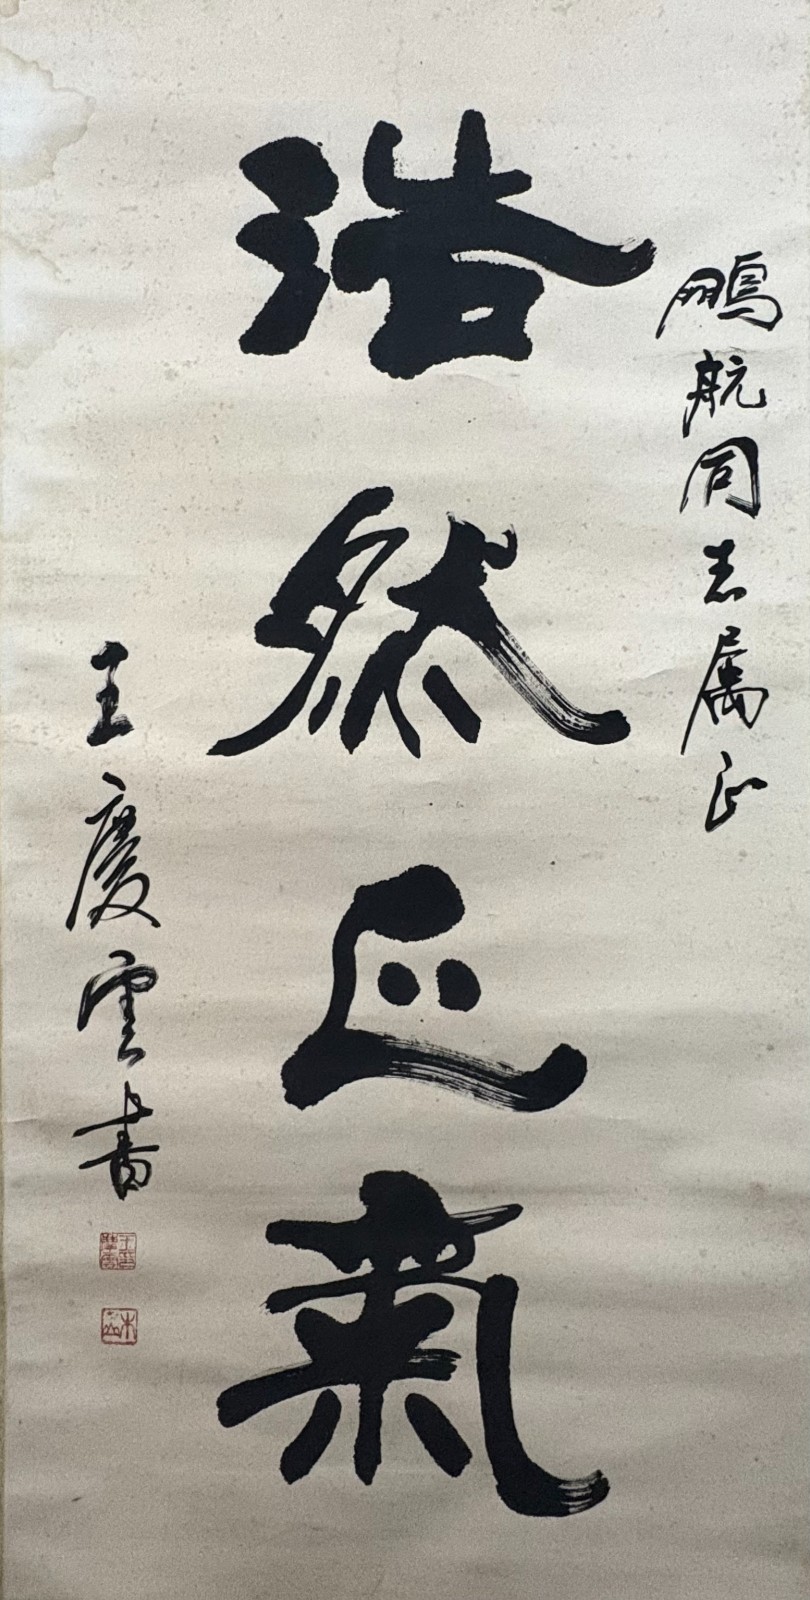 鵬航同志属正
浩然正氣
王慶雲書